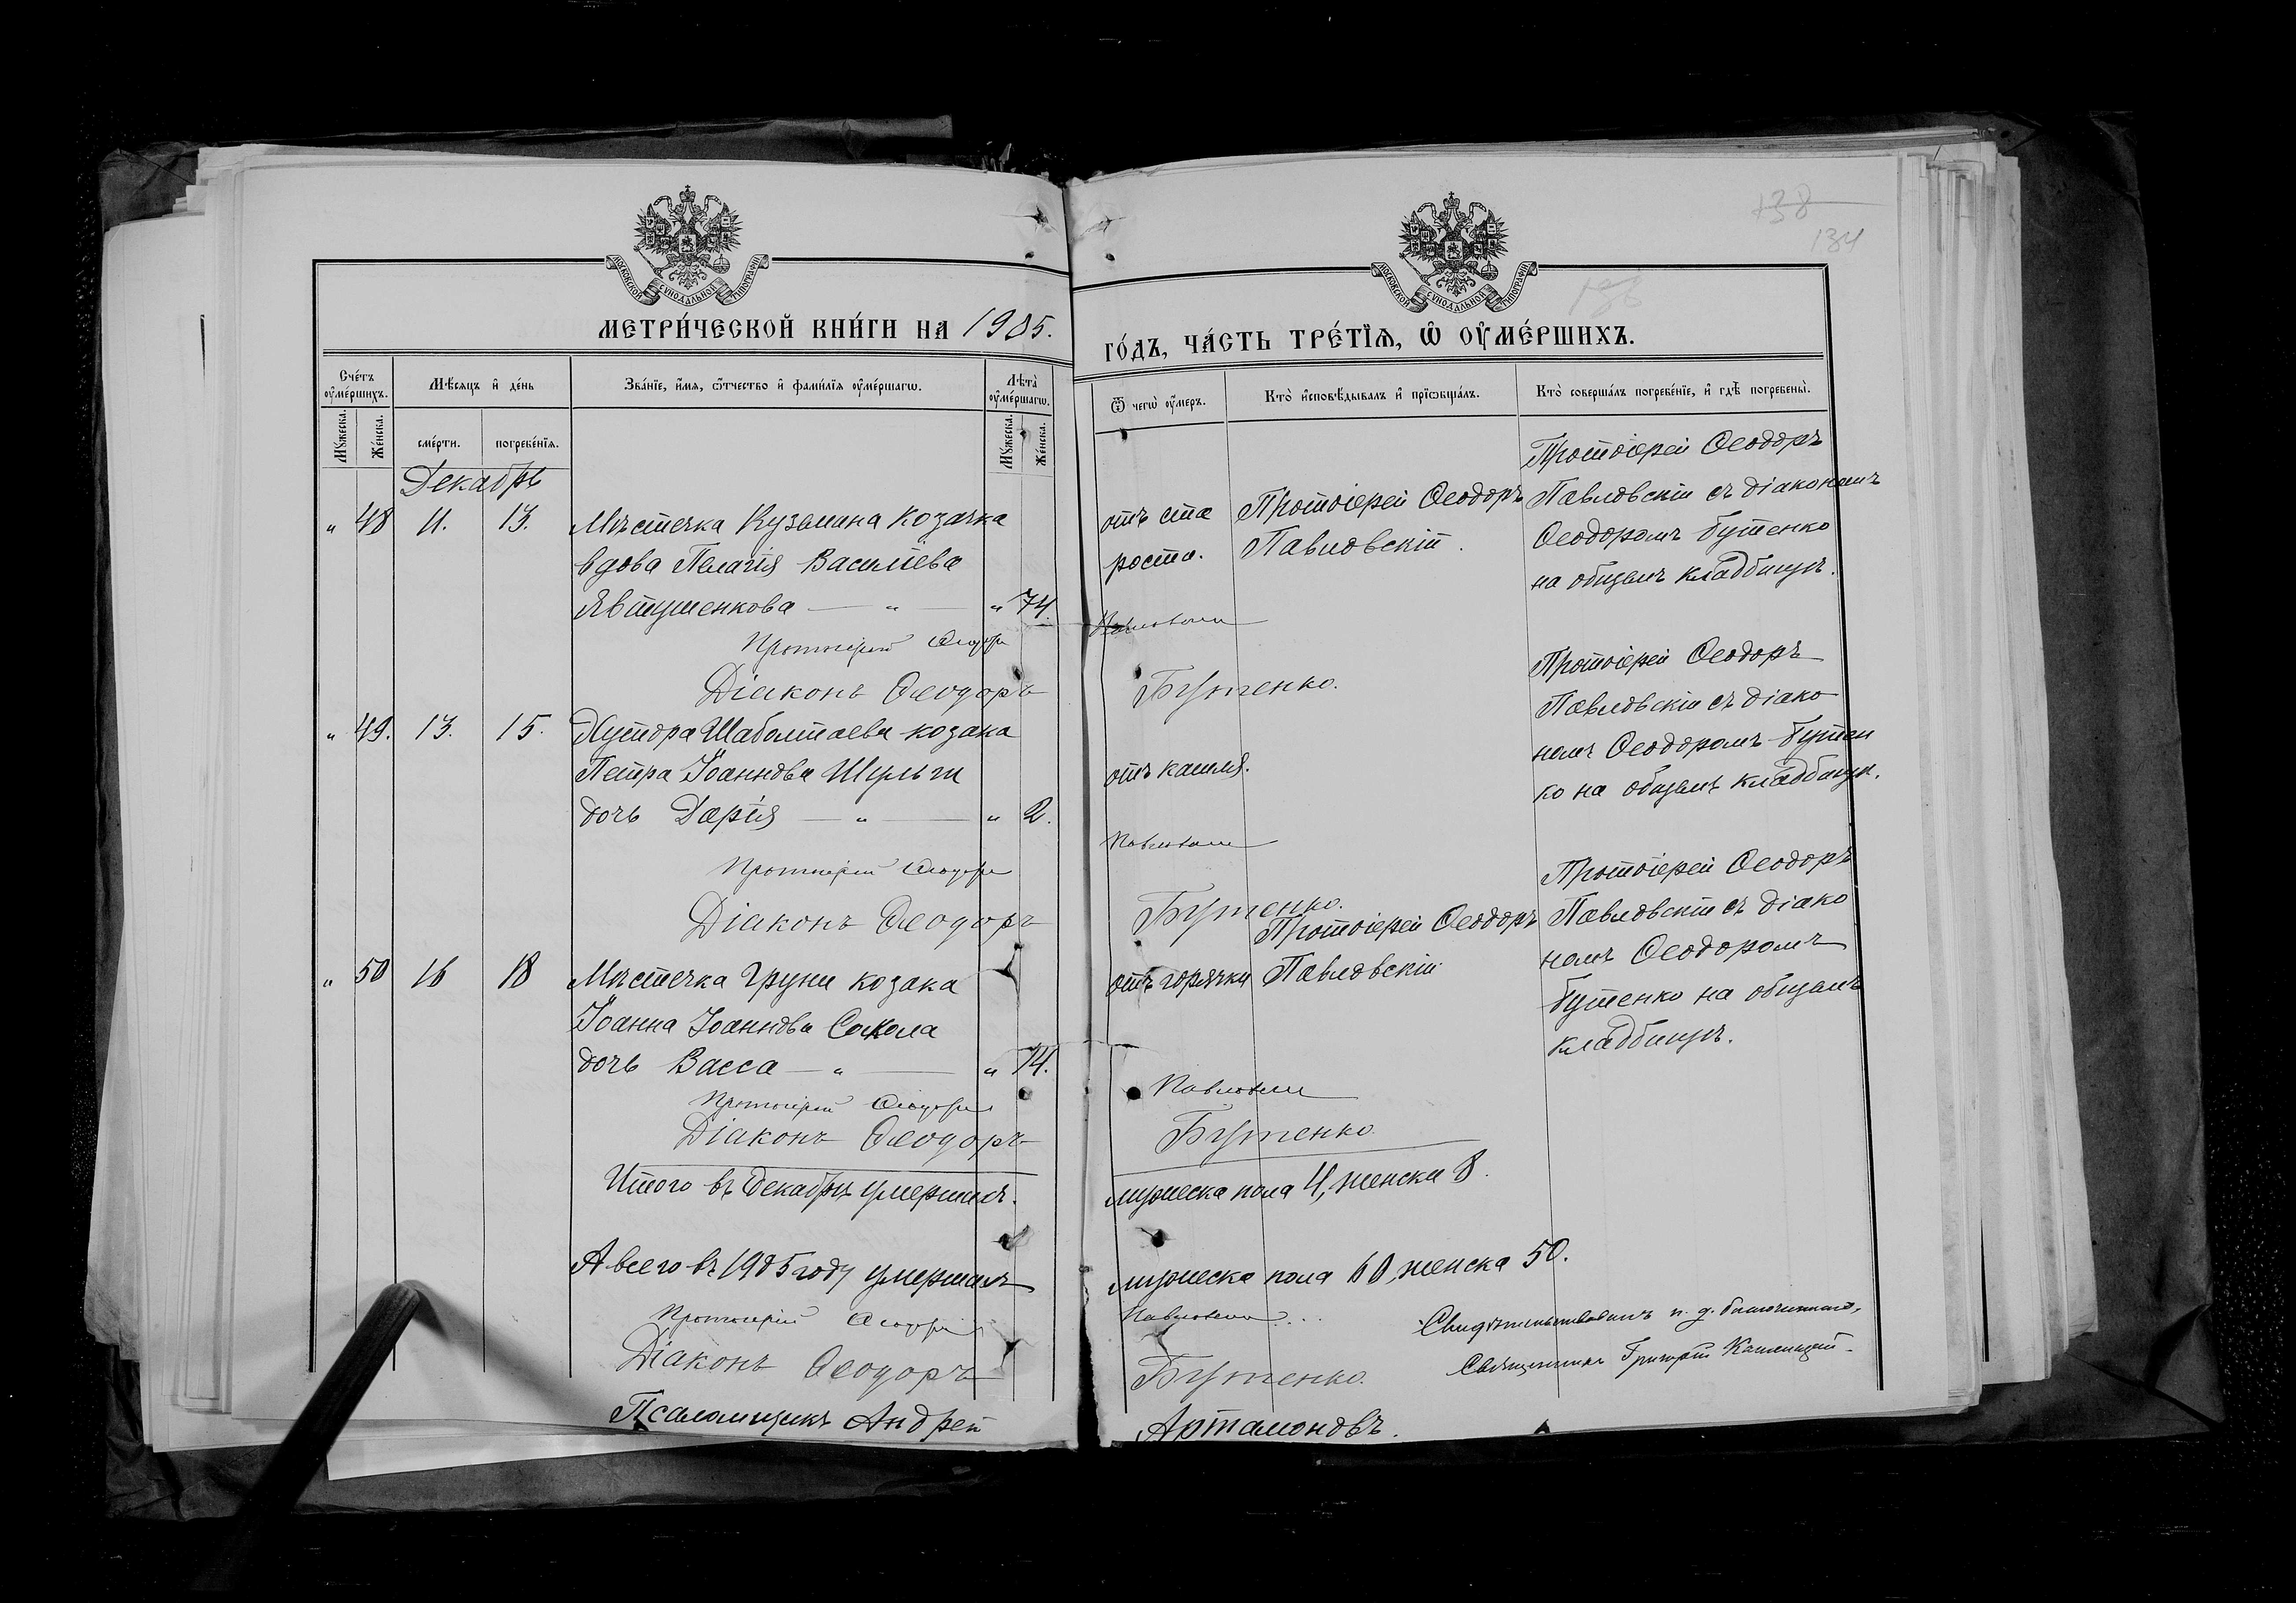 138
134
МОСКОВСКОЙ СѴНОДАЛЬНОЙ ТИПОГРАФІИ
МОСКОВСКОЙ СѴНОДАЛЬНОЙ ТИПОГРАФІИ
МЕТРИ́ЧЕСКОЙ КНИ́ГИ НА 1905.
ГО́ДЪ, ЧА́СТЬ ТРЕ́ТЇѦ, Ѡ҆ ОУ҆МЕ́РШИХЪ.
Сче́тъ оу҆ме́ршихъ.
Мѣ́сяцъ и҆ де́нь
Зва́нїе, и҆́мя, ѻ҆́тчество и҆ фами́лїя оу҆ме́ршагѡ.
Лѣта̀ оу҆ме́ршагѡ.
Ѿ чегѡ̀ оу҆́меръ.
Кто̀ и҆сповѣ́дывалъ и҆ прїѡбща́лъ.
Кто̀ соверша́лъ погребе́нїе, и҆ гдѣ̀ погребены̀.
Мꙋ́жеска.
Же́нска.
сме́рти.
погребе́нїя.
Мꙋ́жеска.
Же́нска.
Декабрь
" 48 11. 13.
Мѣстечка Кузьмина Козачка
вдова Пелагія Василіева
Явтушенкова — " — " 74.
отъ ста
роста.
Протоіерей Ѳеодоръ
Павловскій.
Протоіерей Ѳеодоръ
Павловскій съ діакономъ
Ѳеодоромъ Бутенко
на общемъ кладбищѣ.
Протоіерей Ѳеодоръ Павловскій
Діаконъ Ѳеодоръ Бутенко.
" 49. 13. 15.
Хутора Шаболтаева козака
Петра Іоаннова Шульги
дочь Дарія — " — " 2.
отъ кашля.
Протоіерей Ѳеодоръ
Павловскій съ діако
номъ Ѳеодоромъ Бутен
ко на общемъ кладбищѣ.
Протоіерей Ѳеодоръ Павловскій
Діаконъ Ѳеодоръ Бутенко.
" 50 16 18
Мѣстечка Груни козака
Іоанна Іоаннова Сокола
дочь Васса — " — " 14.
отъ горячки
Протоіерей Ѳеодоръ
Павловскій
Протоіерей Ѳеодоръ
Павловскій съ діако
номъ Ѳеодоромъ
Бутенко на общемъ
кладбищѣ.
Протоіерей Ѳеодоръ Павловскій
Діаконъ Ѳеодоръ Бутенко.
Итого въ Декабрѣ умершихъ. мужеска пола 4, женска 8.
А всего въ 1905 году умершихъ мужеска пола 60, женска 50.
Протоіерей Ѳеодоръ Павловскій
Діаконъ Ѳеодоръ Бутенко.
Псаломщикъ Андрей Артамоновъ.
Свидѣтельствовалъ и. д. благочиннаго,
Священникъ Григорій